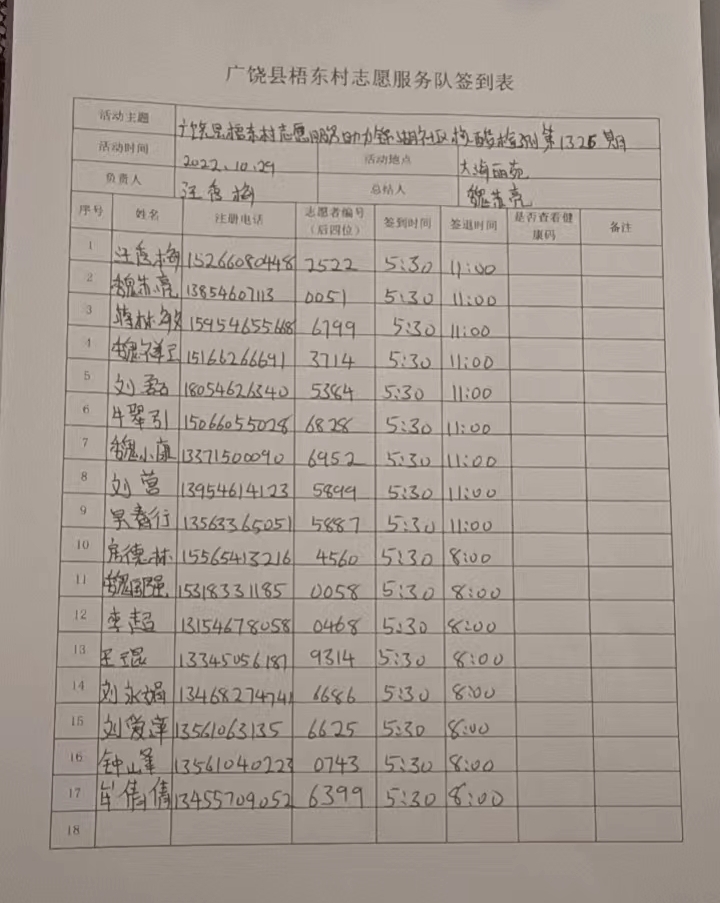 广饶县梧东村志愿服务队签到表
活动主题 广饶县梧东村志愿服务助力锦湖社区核酸检测第1326期
活动时间 2022.10.29 活动地点 大海丽苑
负责人 汪秀梅 总结人 魏朱亮
序号 姓名 注册电话 志愿者编号（后四位） 签到时间 签退时间 是否查看健康码 备注
1 汪秀梅 15266080448 2522 5:30 11:00
2 魏朱亮 13854607113 0051 5:30 11:00
3 15954655668 6799 5:30 11:00
4 15166266691 3714 5:30 11:00
5 刘磊 18054626340 5384 5:30 11:00
6 牛翠引 15066055028 6828 5:30 11:00
7 魏小康 13371500090 6952 5:30 11:00
8 刘营 13954614123 5899 5:30 11:00
9 13563365051 5887 5:30 11:00
10 房德林 15565413216 4560 5:30 8:00
11 15318331185 0058 5:30 8:00
12 李超 13154678058 0468 5:30 8:00
13 王琨 13345056187 9314 5:30 8:00
14 刘永娟 13468274741 6686 5:30 8:00
15 刘爱萍 13561063135 6625 5:30 8:00
16 钟山峰 13561040223 0743 5:30 8:00
17 牟倩倩 13455709052 6399 5:30 8:00
18